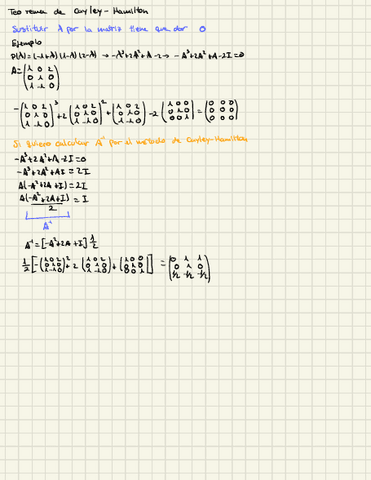 Teorema de Cayley-Hamilton
Sustituir λ por la matriz tiene que dar 0
Ejemplo
P(λ)=(-1+λ)(1-λ)(2-λ) → -λ³+2λ²+λ-2 → -A³+2A²+A-2I=0
A=(1 0 2
0 1 0
1 -1 0)
-(1 0 2
0 1 0
1 -1 0)³+2(1 0 2
0 1 0
1 -1 0)²+(1 0 2
0 1 0
1 -1 0)-2(1 0 0
0 1 0
0 0 1)=(0 0 0
0 0 0
0 0 0)
Si quiero calcular A⁻¹ por el método de Cayley-Hamilton
-A³+2A²+A-2I=0
-A³+2A²+A I=2I
A(-A²+2A+I)=2I
A(-A²+2A+I)/2=I
A⁻¹
A⁻¹=[-A²+2A+I]1/2
1/2[-(1 0 2
0 1 0
1 -1 0)²+2(1 0 2
0 1 0
1 -1 0)+(1 0 0
0 1 0
0 0 1)]=(0 1 1
0 1 0
1/2 -1/2 -1/2)